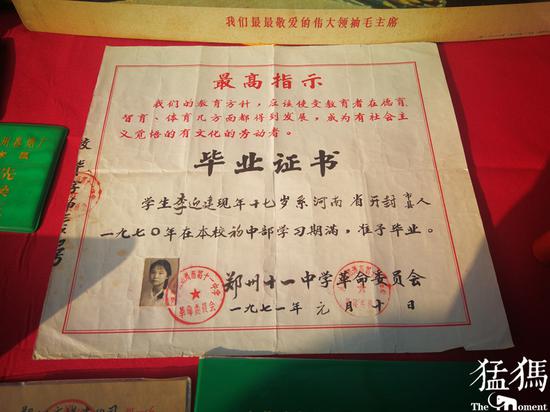 我们最最敬爱的伟大领袖毛主席
最高指示
我们的教育方针，应该使受教育者在德育、
智育、体育几方面都得到发展，成为有社会主
义觉悟的有文化的劳动者。
毕业证书
学生李迎建现年十七岁系河南省开封市县人
一九七〇年在本校初中部学习期满，准予毕业。
郑州十一中学革命委员会
一九七一年元月十日
革命委员会
猛犸
The Moment